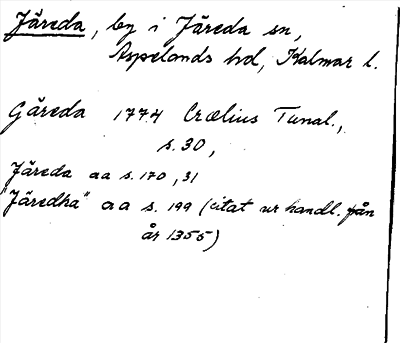 Järeda, by i Järeda sn,
Aspelands hd, Kalmar l.
Gäreda 1774 Crælius Tunal.,
s. 30,
Järeda aa s. 170, 31
"Järedha" aa s. 199 (citat ur handl. från
år 1355)